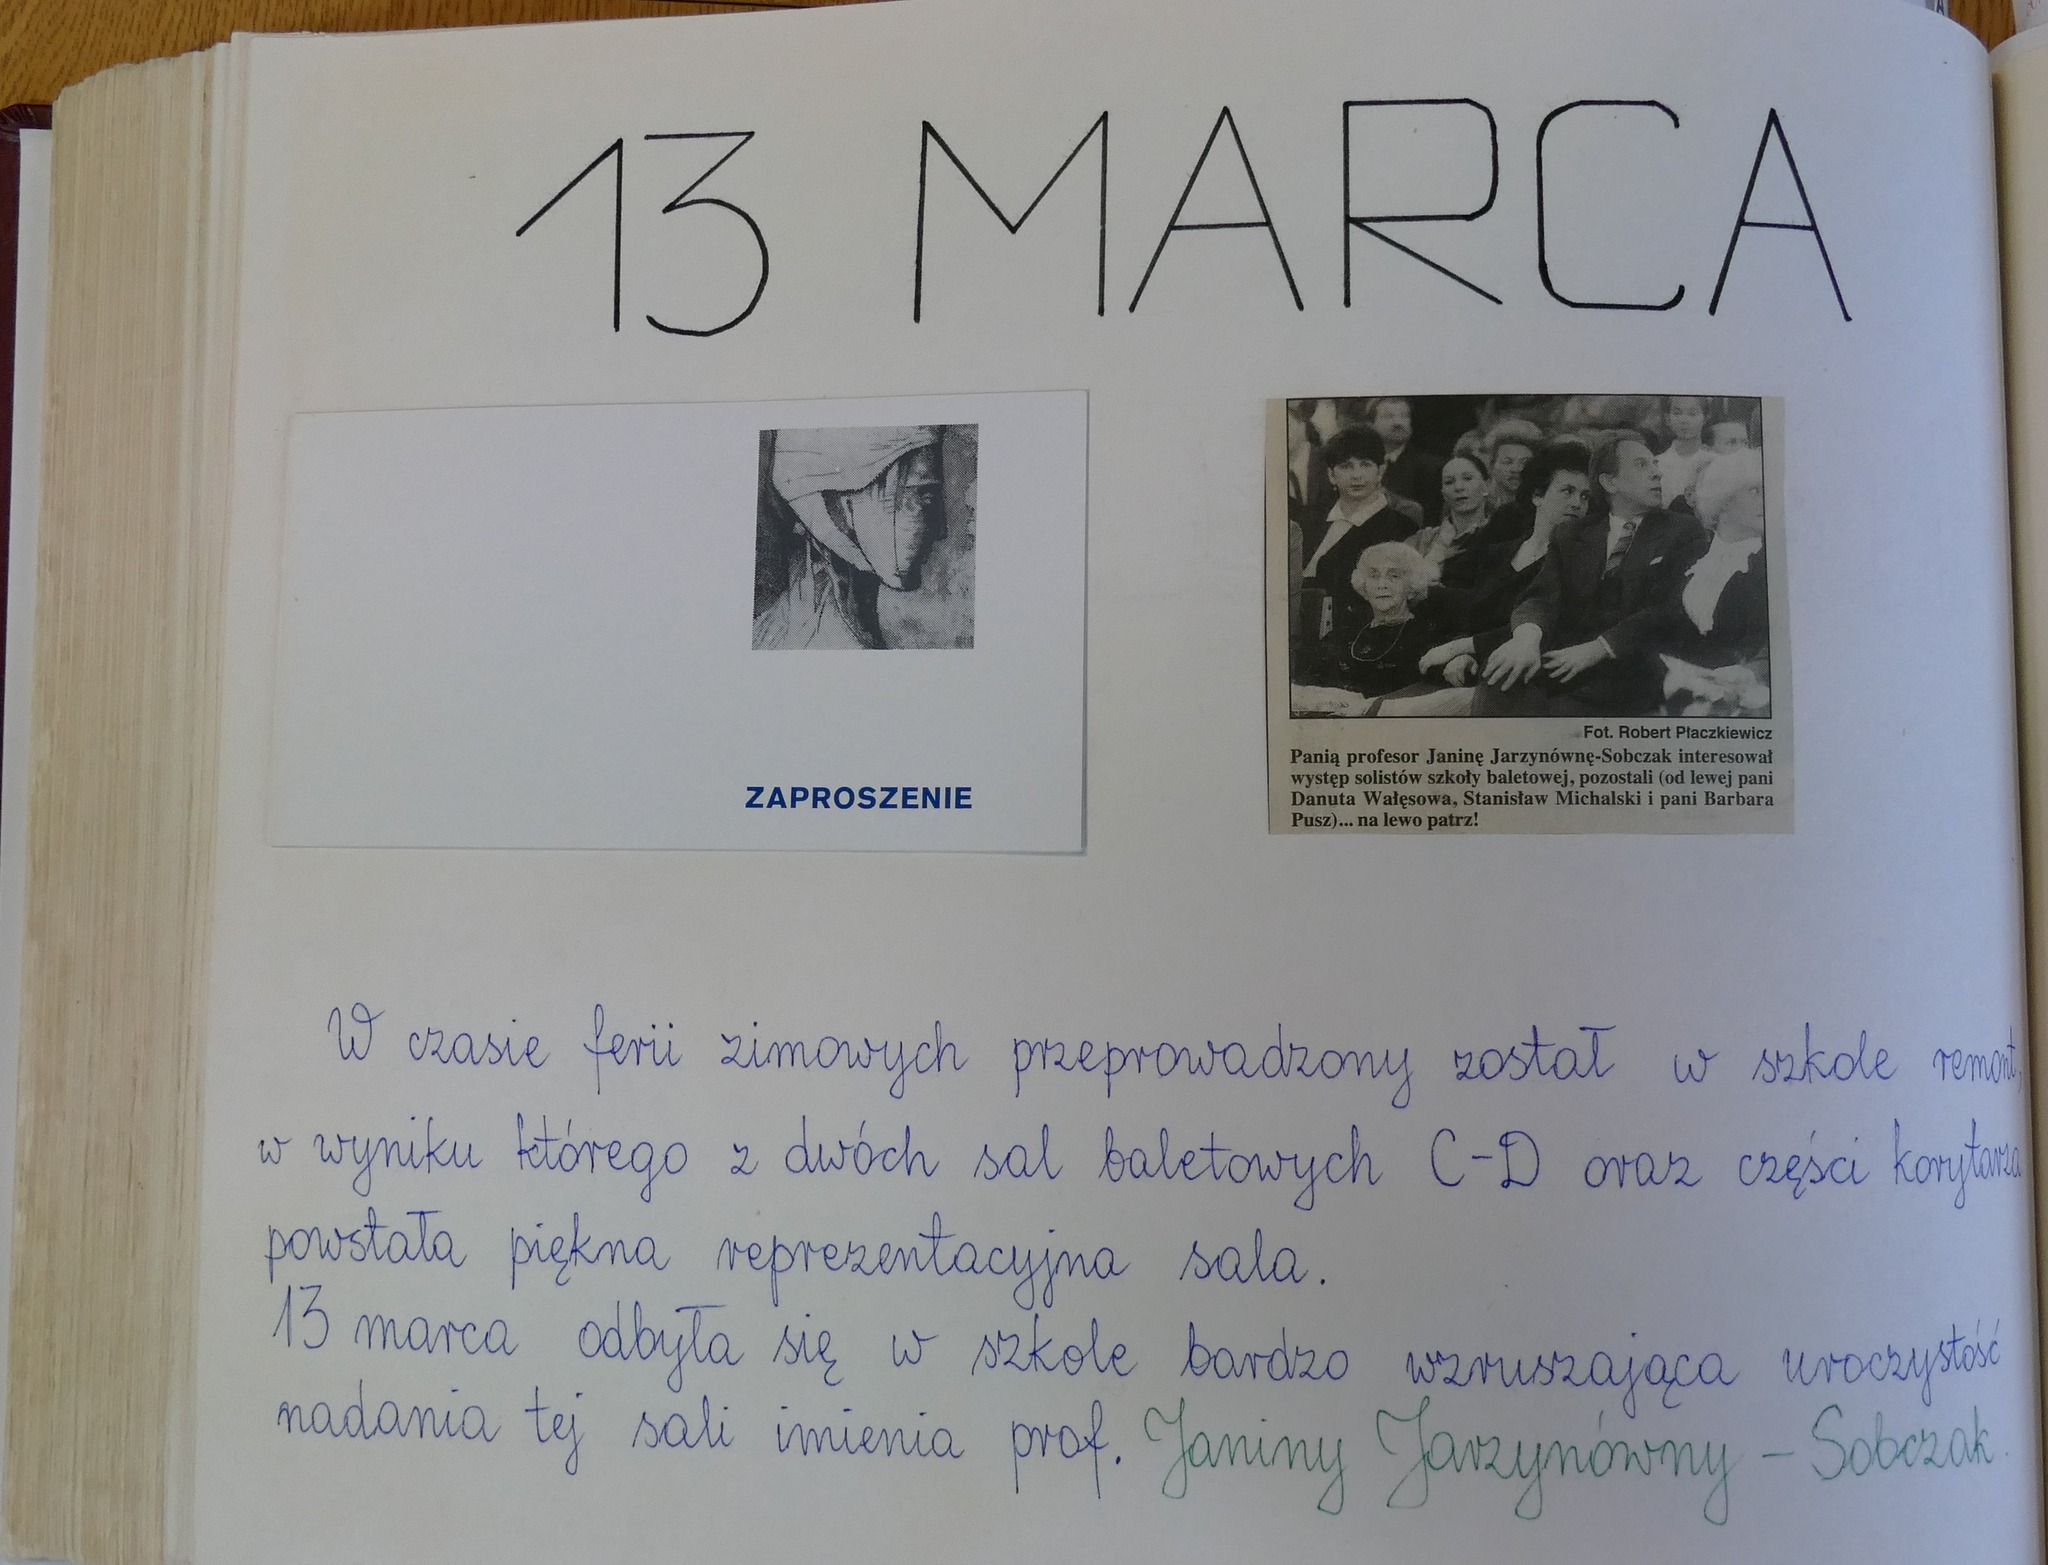 13 MARCA
ZAPROSZENIE
Fot. Robert Płaczkiewicz
Panią profesor Janinę Jarzynównę-Sobczak interesował
występ solistów szkoły baletowej, pozostali (od lewej pani
Danuta Wałęsowa, Stanisław Michalski i pani Barbara
Pusz)... na lewo patrz!
W czasie ferii zimowych przeprowadzony został w szkole remont,
w wyniku którego z dwóch sal baletowych C-D oraz części korytarza
powstała piękna reprezentacyjna sala.
13 marca odbyła się w szkole bardzo wzruszająca uroczystość
nadania tej sali imienia prof. Janiny Jarzynówny - Sobczak.